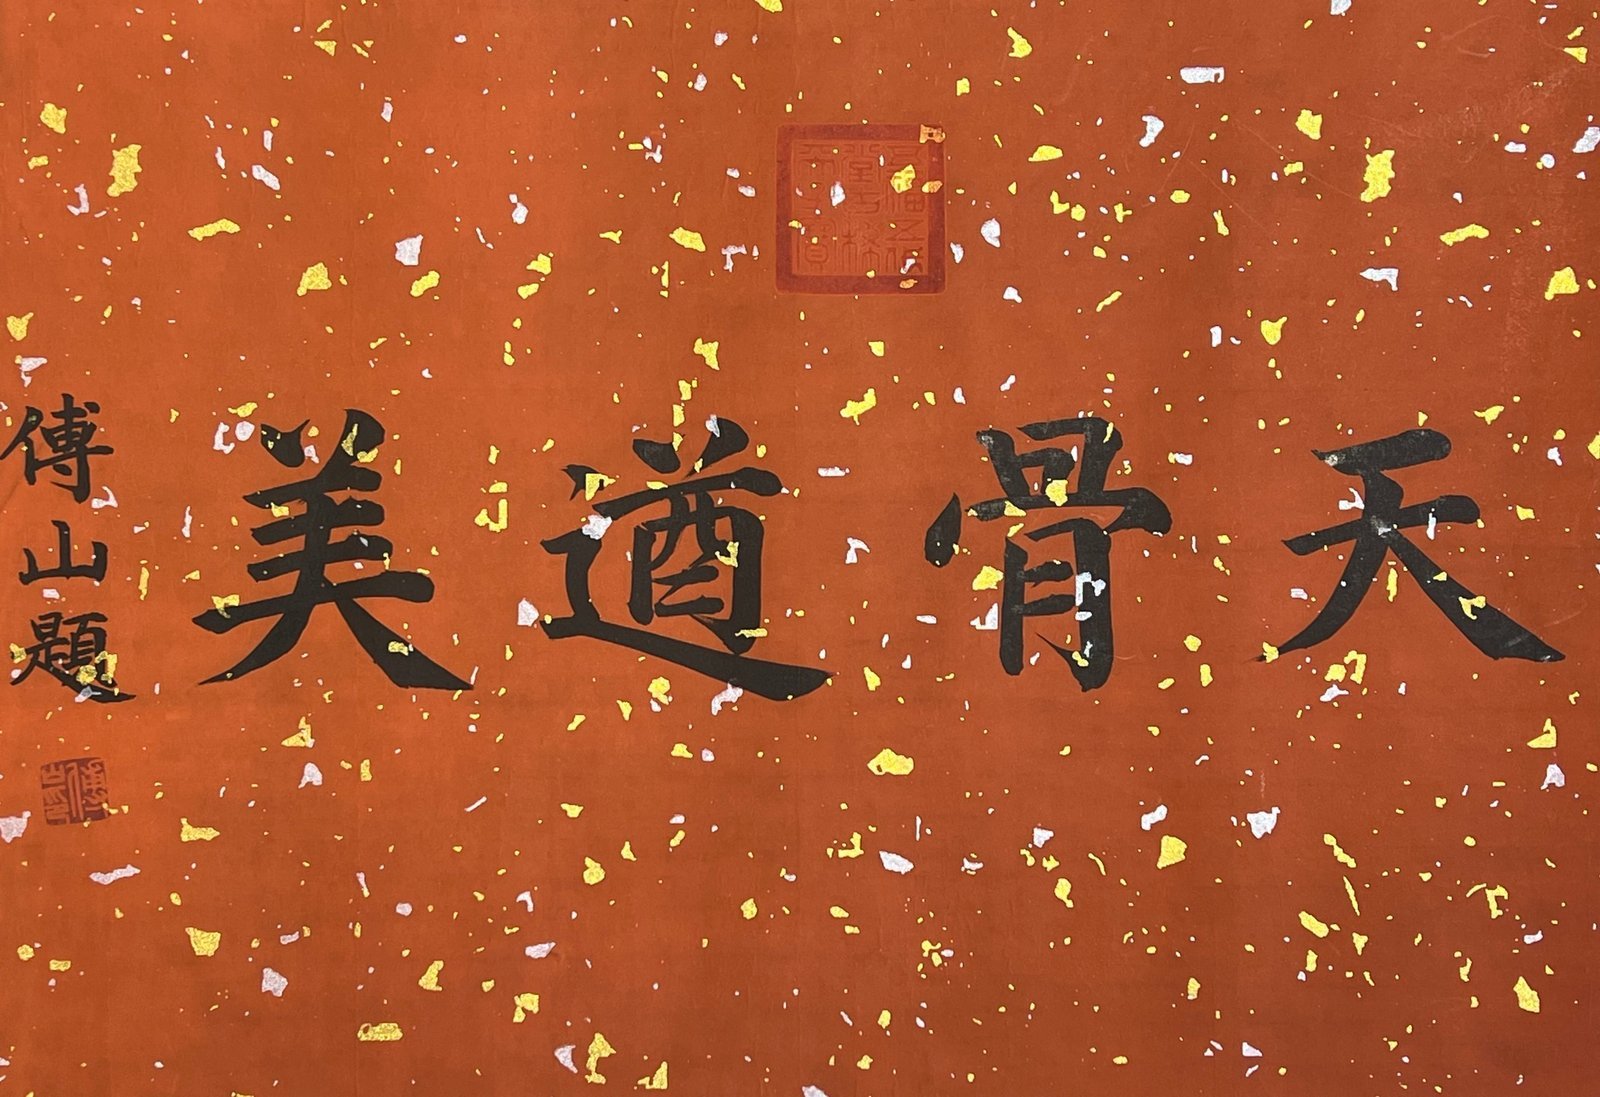 天骨遒美
傅山題